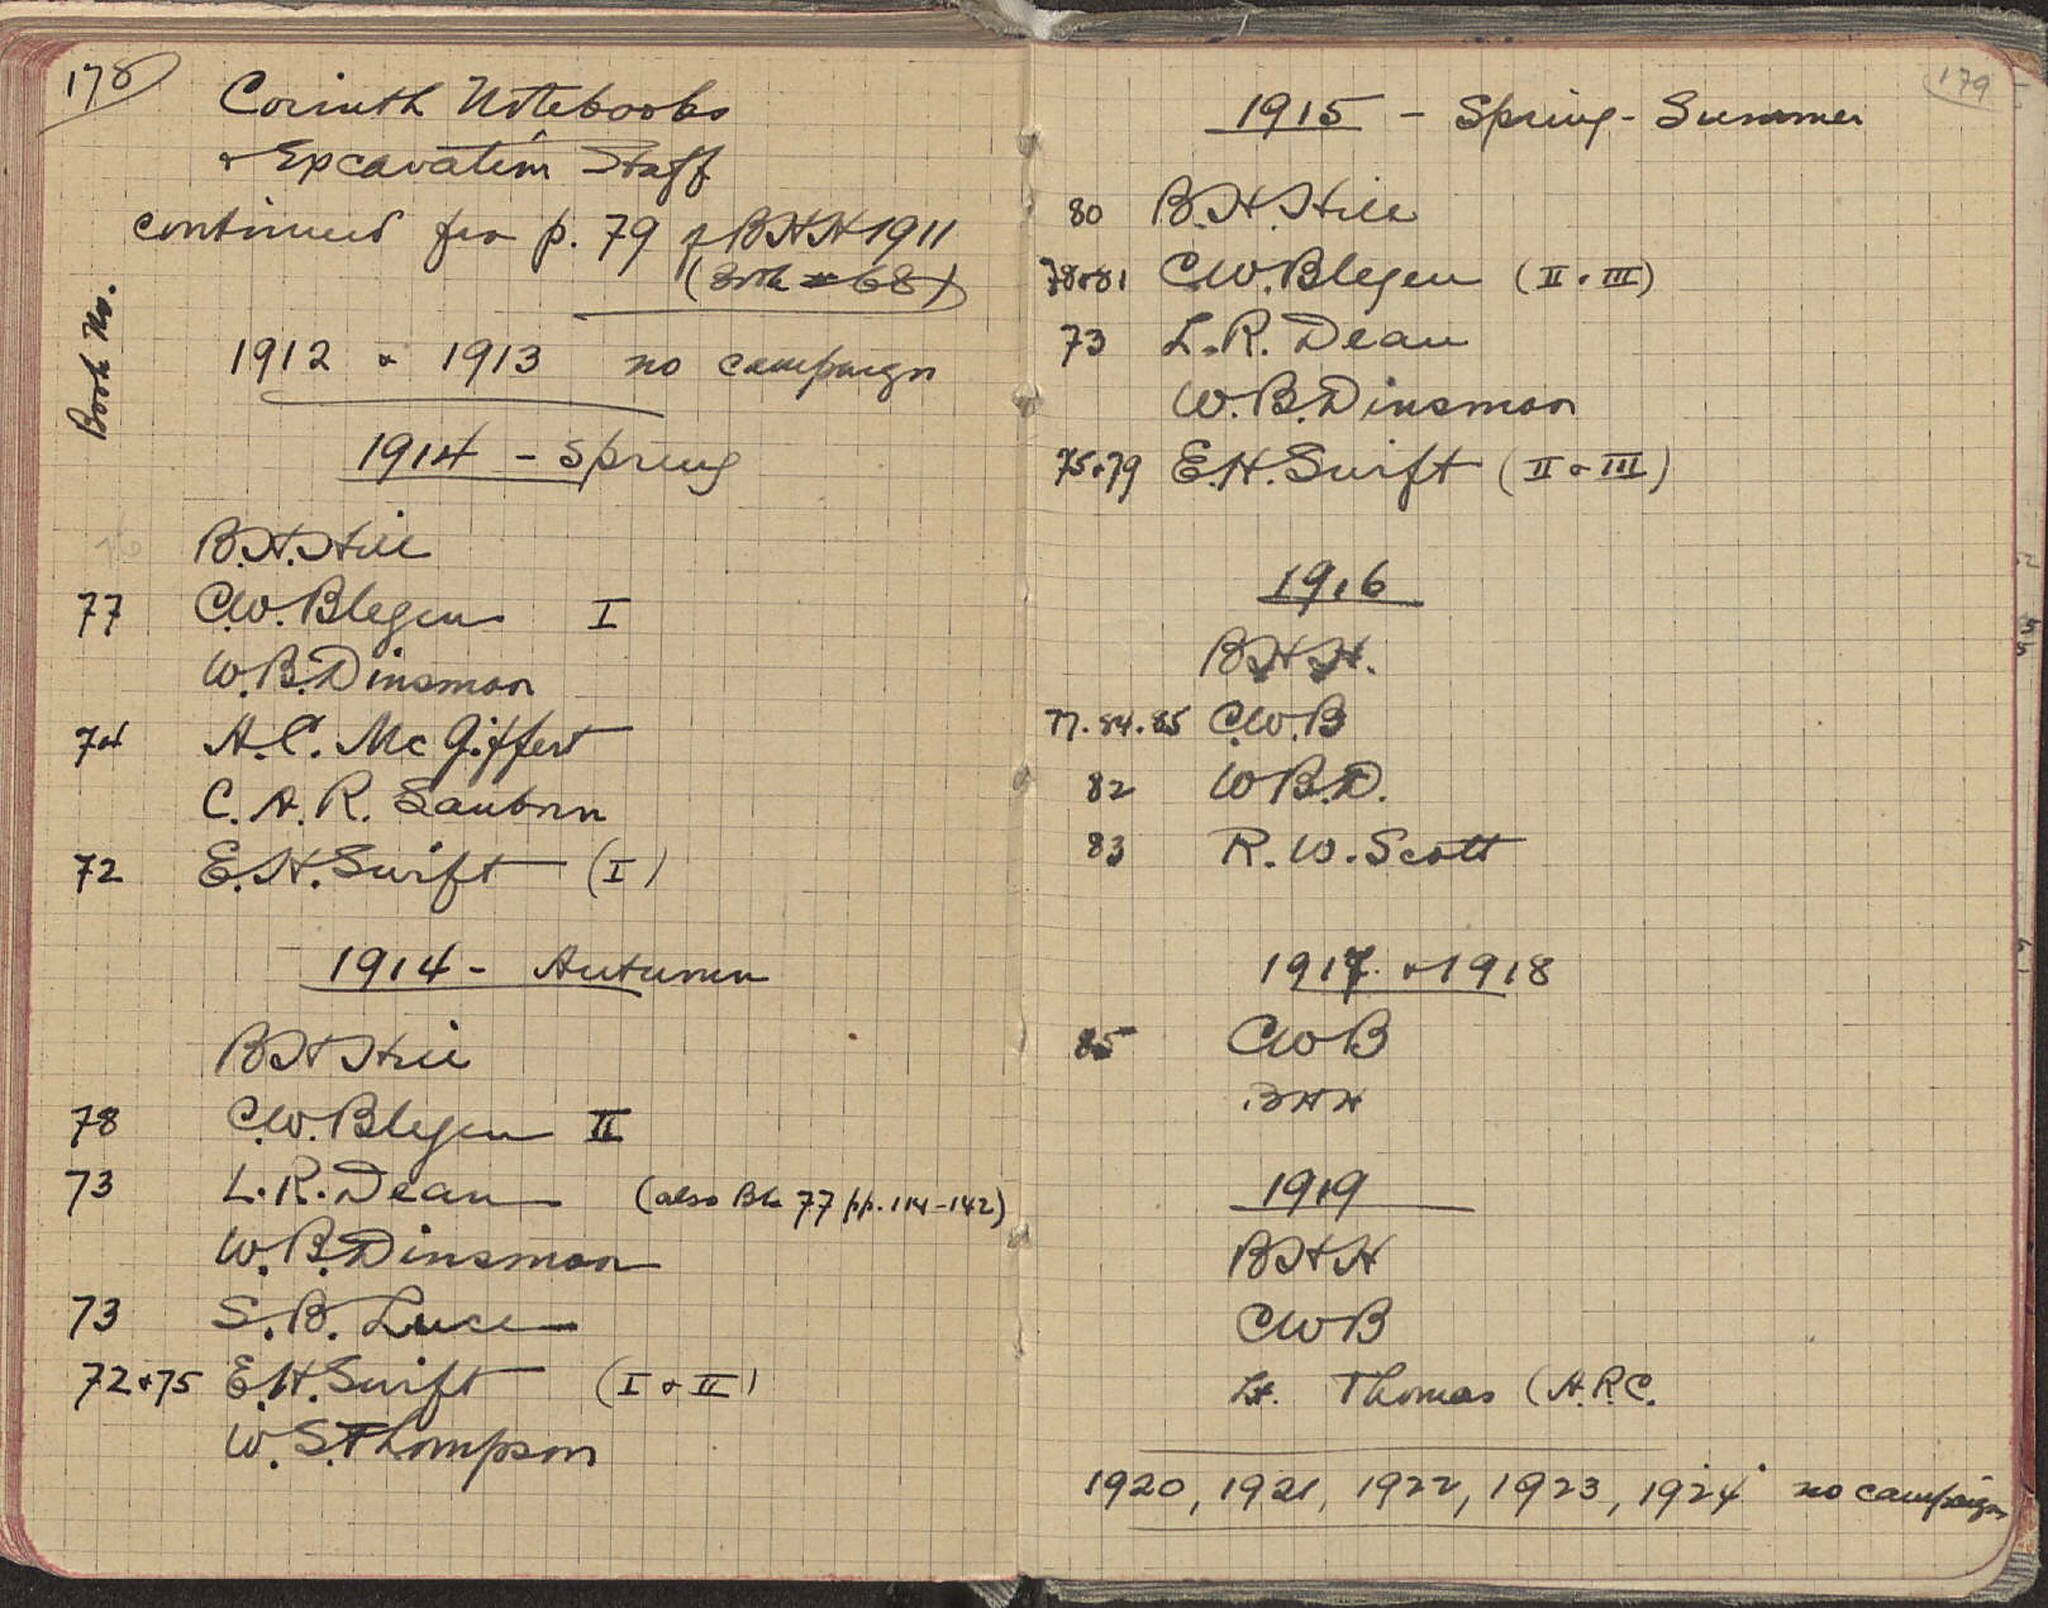 178
Corinth Notebooks
& Excavation Staff
continued fro p. 79 of BHH 1911
(Book # 68)
Book No.
1912 & 1913 no campaign
1914 - Spring
76 B.H. Hill
77 C.W. Blegen I
W.B. Dinsmoor
74 A.C. McGiffert
C.A.R. Sanborn
72 E.H. Swift (I)
1914 - Autumn
B H Hill
78 C.W. Blegen II
73 L.R. Dean (also Bk 77 pp. 114-142)
W.B. Dinsmoor
73 S.B. Luce
72 & 75 E.H. Swift (I & II)
W.S. Thompson
179
1915 - Spring - Summer
80 B.H. Hill
78 & 81 C.W. Blegen (II & III)
73 L.R. Dean
W.B. Dinsmoor
75 & 79 E.H. Swift (II & III)
1916
B H H.
77. 84. 85 C.W.B
82 W B.D.
83 R.W. Scott
1917 & 1918
85 C W B
B H H
1919
B H H
C W B
Lt. Thomas (A.R.C.
1920, 1921, 1922, 1923, 1924 no campaign